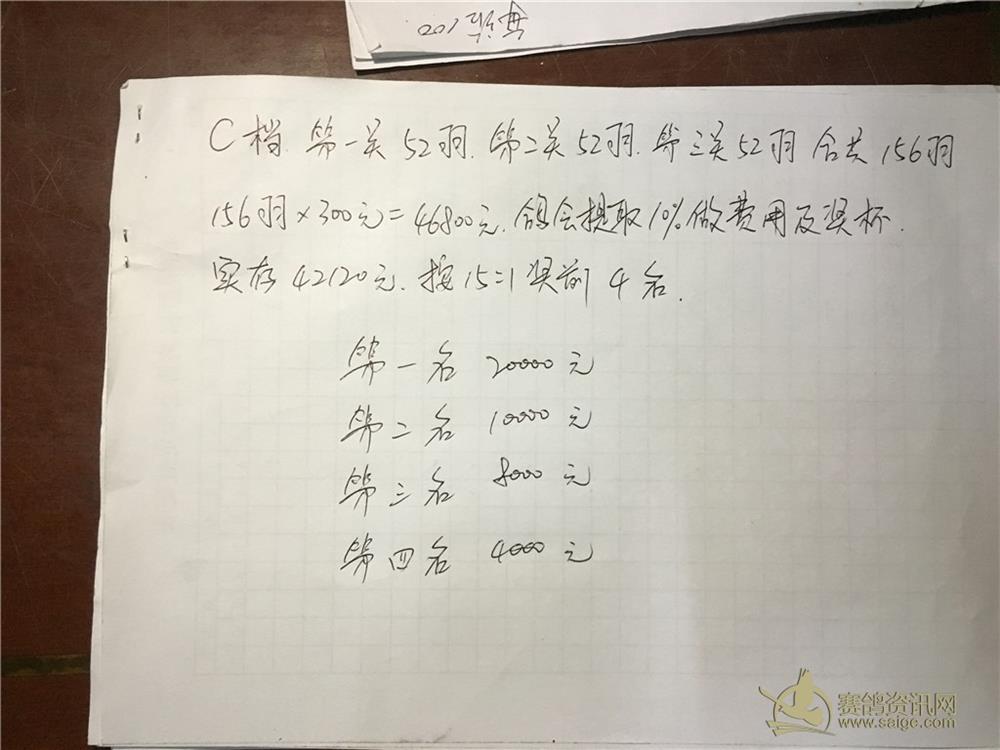 C档.第一关52羽.第二关52羽.第三关52羽 合共156羽
156羽×300元=46800元.鸽会提取10%做费用及奖杯.
实存42120元.按15=1奖前4名.
第一名 20000元
第二名 10000元
第三名 8000元
第四名 4000元
赛鸽资讯网
www.saige.com